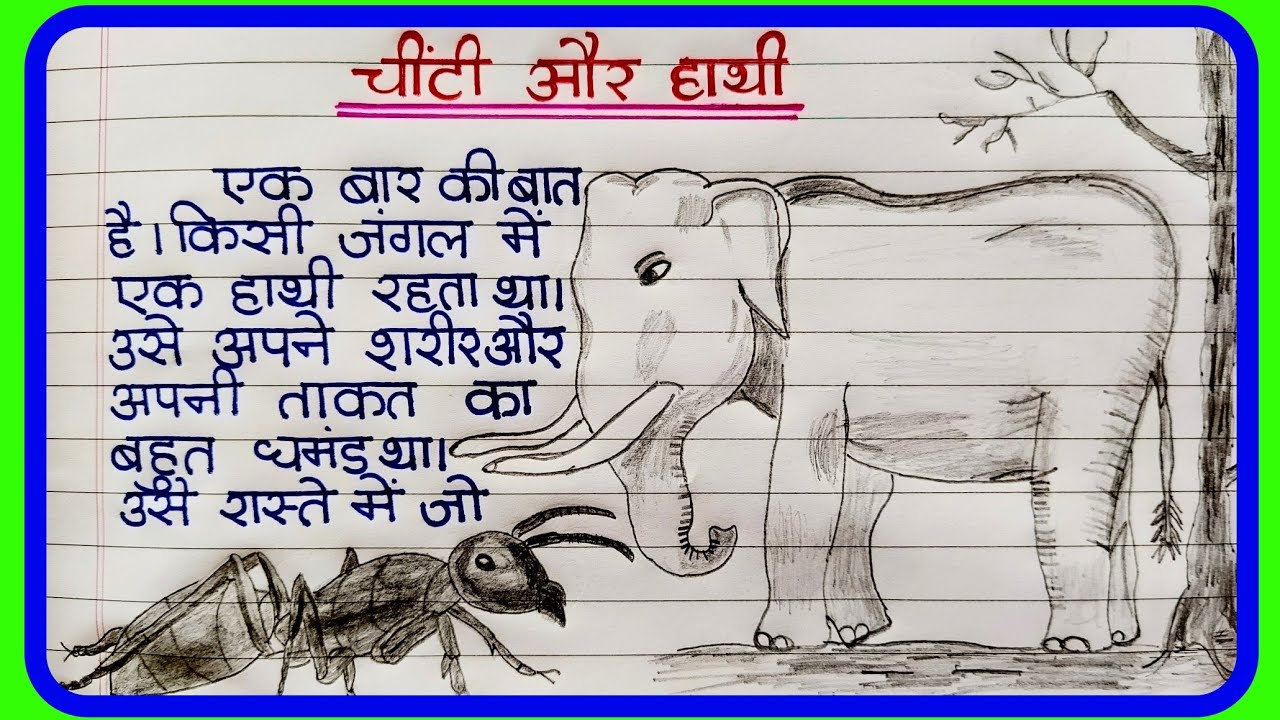 चींटी और हाथी
एक बार की बात
है। किसी जंगल में
एक हाथी रहता था।
उसे अपने शरीर और
अपनी ताकत का
बहुत घमंड था।
उसे रास्ते में जो